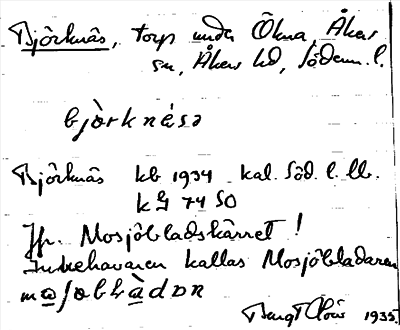 Björknäs, torp under Ökna, Åkers
sn, Åkers hd, Söderm. l.
bjò̀rknésə
Björknäs kb 1934 kal. Söd. l. lb.
k G 74 SO
Jfr. Mosjöbladskärret!
Innehavaren kallas Mosjöbladaren
Bengt 1935.